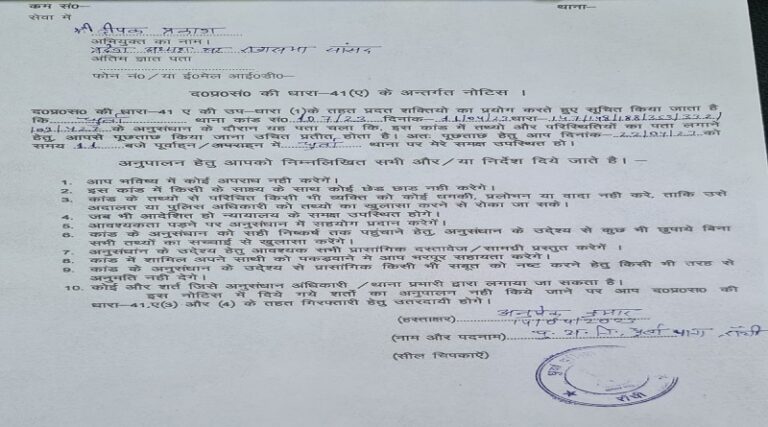 कम सं०— थाना—
सेवा में
श्री दीपक प्रकाश
अभियुक्त का नाम।
प्रदेश अध्यक्ष सह राज्यसभा सांसद
अंतिम ज्ञात पता
फोन नं०/या ई०मेल आई०डी०
द०प्र०सं० की धारा—41(ए) के अन्तर्गत नोटिस ।
द०प्र०सं० की धारा—41 ए की उप-धारा (1)के तहत प्रदत शक्तियो का प्रयोग करते हुए सूचित किया जाता है
कि धुर्वा थाना कांड सं० 107/23 दिनांक— 11/04/23 धारा— 147/148/188/353/332/
के अनुसंधान के दौरान यह पता चला कि, इस कांड में तथ्यो और परिस्थितियों का पता लगाने
हेतु, आपसे पूछताछ किया जाना उचित प्रतीत होता है। अतः पूछताछ हेतु आप दिनांक— को
समय 11 बजे पूर्वाहन/अपराहन में धुर्वा थाना पर मेरे समक्ष उपस्थित हो।
अनुपालन हेतु आपको निम्नलिखित सभी और/या निर्देश दिये जाते है। –
1. आप भविष्य में कोई अपराध नही करेगें।
2. इस कांड में किसी के साक्ष्य के साथ कोई छेड छाड नही करेगें।
3. कांड के तथ्यो से परिचित किसी भी व्यक्ति को कोई धमकी, प्रलोभन या वादा नही करे, ताकि उसे
अदालत या पुलिस अधिकारी को तथ्यों का खुलासा करने से रोका जा सके।
4. जब भी आदेशित हो न्यायालय के समक्ष उपस्थित होगे।
5. आवश्यकता पड़ने पर अनुसंधान में सहयोग प्रदान करेगें।
6. कांड के अनुसंधान को सही निष्कर्ष तक पहुंचाने हेतु, अनुसंधान के उद्देश्य से कुछ भी छुपाये बिना
सभी तथ्यों का सच्चाई से खुलासा करेगें।
7. अनुसंधान के उद्देश्य हेतु आवश्यक सभी प्रासांगिक दस्तावेज/सामग्री प्रस्तुत करेगें ।
8. कांड में शामिल अपने साथी को पकड़वाने मे आप भरपूर सहायता करेगें।
9. कांड के अनुसंधान के उदेश्य से प्रासांगिक किसी भी सबूत को नष्ट करने हेतु किसी भी तरह से
अनुमति नही देगें।
10. कोई और शर्त जिसे अनुसंधान अधिकारी /थाना प्रभारी द्वारा लगाया जा सकता है।
इस नोटिस में दिये गये शर्तो का अनुपालन नही किये जाने पर आप द०प्र०सं० की
धारा—41,ए(3) और (4) के तहत गिरफ्तारी हेतु उतरदायी होगे।
(हस्ताक्षर) अभिषेक कुमार
(नाम और पदनाम) पु. अ. नि., धुर्वा थाना, राँची
(सील चिपकाऐं)
राँची